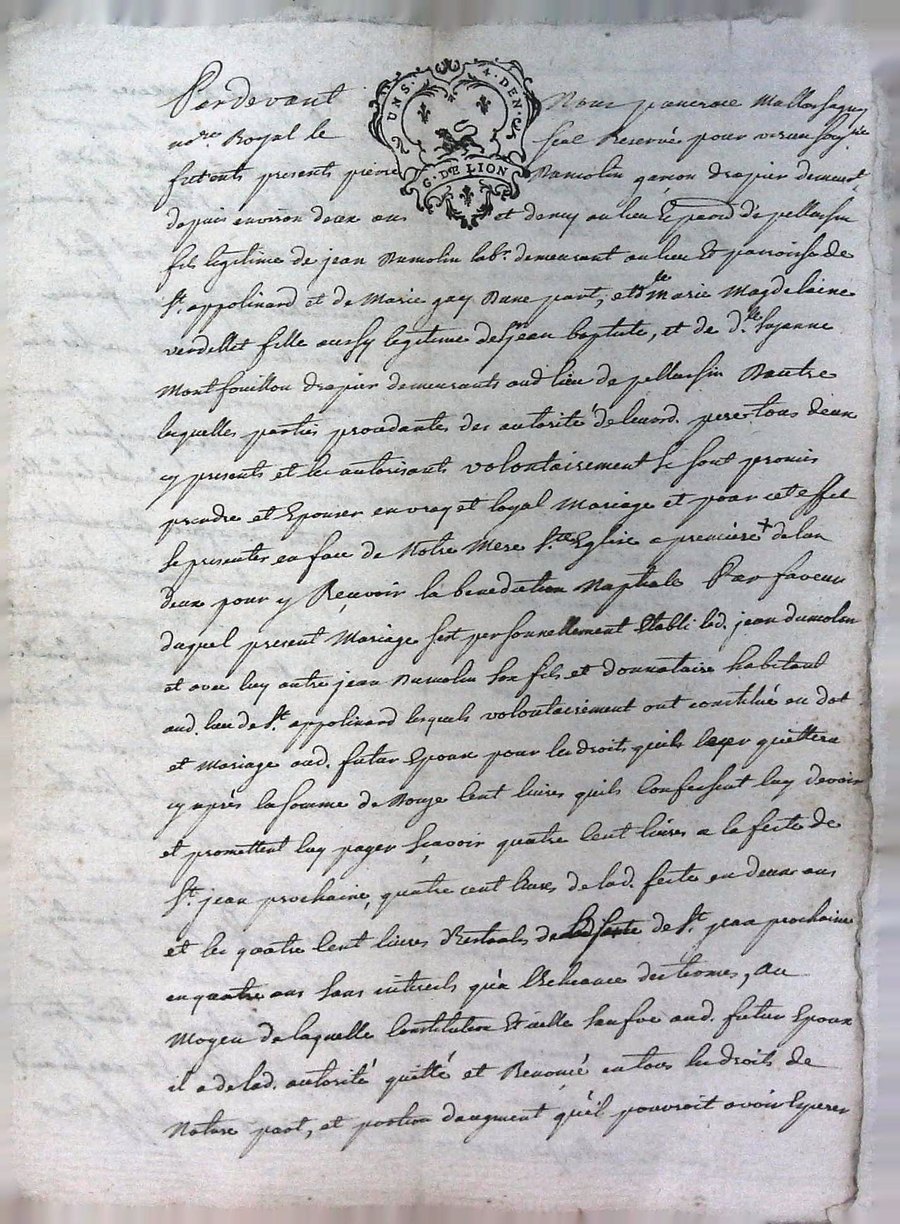 UNS. 4. DEN.
G. DE LION
Pardevant Nous pancrace
no.re Royal le scel Reservé pour
furent presents pierre Dumolin garcon drapier demeurt.
depuis environ deux ans et demy au lieu Et parr.d de pellussin
fils legitime de jean Dumolin labr. demeurant au lieu Et parroisse de
St. appolinard et de Marie gay Dune part, et dlle marie Magdelaine
verdellet fille aussy legitime de Sr jean baptiste, et de dlle Suzanne
Montfouillou drapier demeurants aud. lieu de pellussin Dautre
lesquelles parties procedantes des autorité de leurd. peres tous deux
cy presents et les autorisants volontairement se sont promis
prendre et Epouser en vray et loyal Mariage et pour cet effet
se presenter en face de Notre Mere Ste Eglise a premiere + de lun
deux pour y Recevoir la benediction Nuptiale Par faveur
duquel present Mariage sest personnellement Etabli led. jean dumolin
et avec luy autre jean Dumolin son fils et donnataire habitant
aud. lieu de St. appolinard lesquels volontairement ont constitué en dot
et Mariage aud. futur Epoux pour les droits quils leger quittera
cy après la somme de Douze cent livres quils confessent luy devoir
et promettent luy payer sçavoir quatre cent livres a la feste de
St. jean prochaine, quatre cent livres de lad. feste en deux ans
et les quatre cent livres Restants de lad. feste de St. jean prochaine
en quatre ans sans interets qu'a l'Echeance des termes, Au
Moyen de laquelle Constitution Et icelle sauve aud. futur Epoux
il a de lad. autorité quitté et Renoncé en tous les droits de
Nature part, et portion daugment qu'il pouvroit avoir Esperer